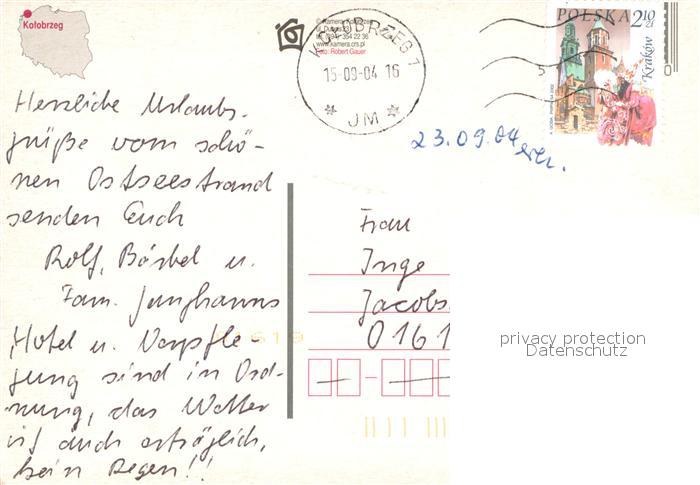 Kołobrzeg
© Kamera Kołobrzeg
tel. (094) 354 22 36
www.kamera.crs.pl
Foto: Robert Gauer
KOŁOBRZEG 1
15-09-04 16
* JM *
POLSKA 2¹⁰ ZŁ
Kraków
5 0
23.09.04 erh.
Herzliche Urlaubs-
grüße vom schö-
nen Ostseestrand
senden Euch
Rolf, Bärbel u.
Fam. Junghanns
Hotel u. Verpfle-
gung sind in Ord-
nung, das Wetter
ist auch erträglich,
kein Regen!!
Frau
Inge
Jacobs
0161
1619
privacy protection
Datenschutz